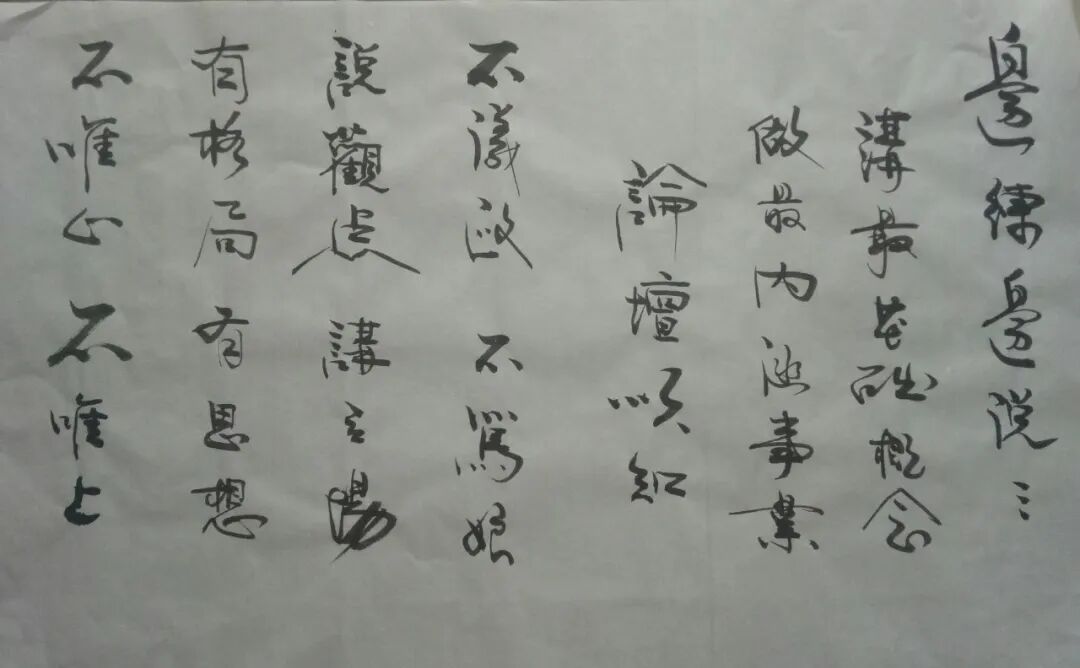 邊練邊說三
講最基础概念
做最内涵事業
論壇以知
不議政 不罵娘
說觀点 講立場
有格局 有思想
不唯心 不唯上